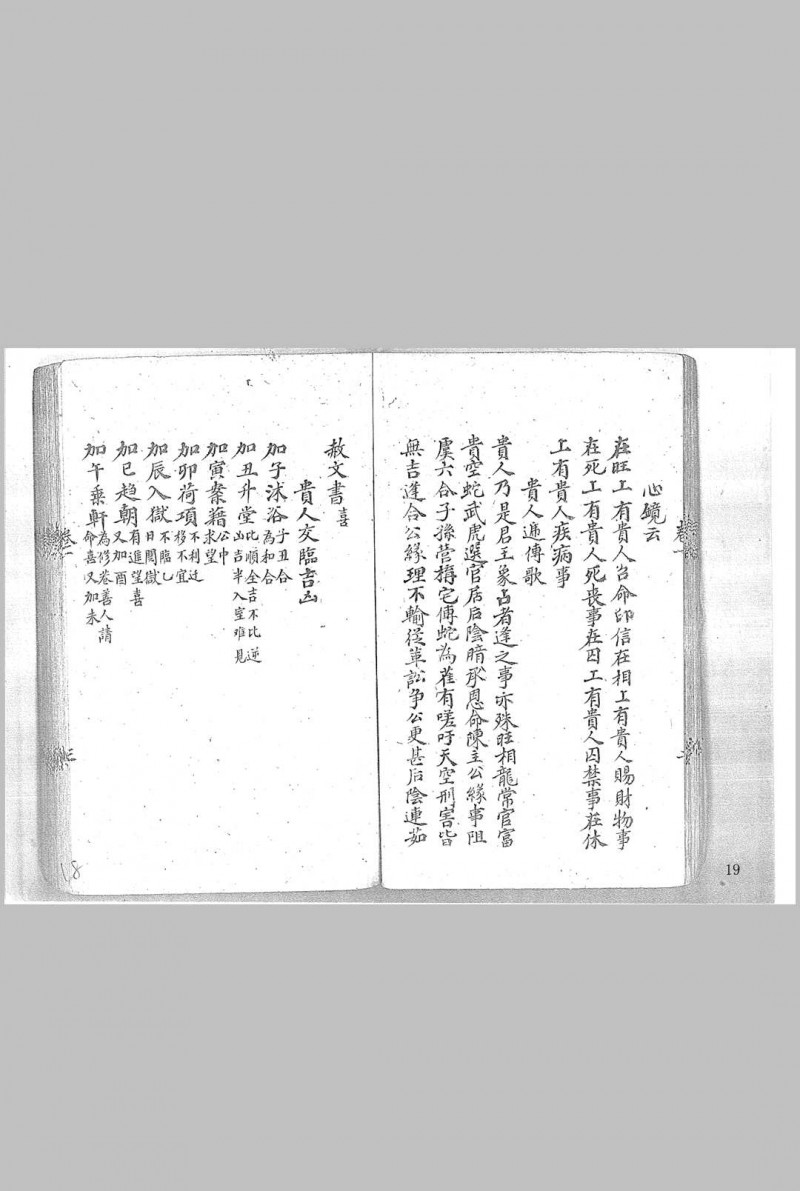 心鏡云
在旺上有貴人召命印信在相上有貴人賜財物事
在死上有貴人死喪事在囚上有貴人囚禁事在休
上有貴人疾病事
貴人遁傳歌
貴人乃是君王象占者逢之事亦殊旺相龍常官富
貴空蛇武虎選官居后陰暗承恩命陳主公緣事阻
虞六合子孫營搆宅傳蛇為雀有嗟吁天空刑害皆
無吉逢合公緣理不輸從革訟争公更甚后陰連茹
赦文書喜
貴人交臨吉凶
加子沭浴子丑合為和合
加丑升堂比順全吉不比逆凶吉半入室难見
加寅案籍公中求望
加卯荷項不利迁移不宜
加辰入獄不臨乙日間獄
加巳趋朝有進望喜又加酉
加午乘軒為修卷善人請命喜又加未
卷一
三
18
19